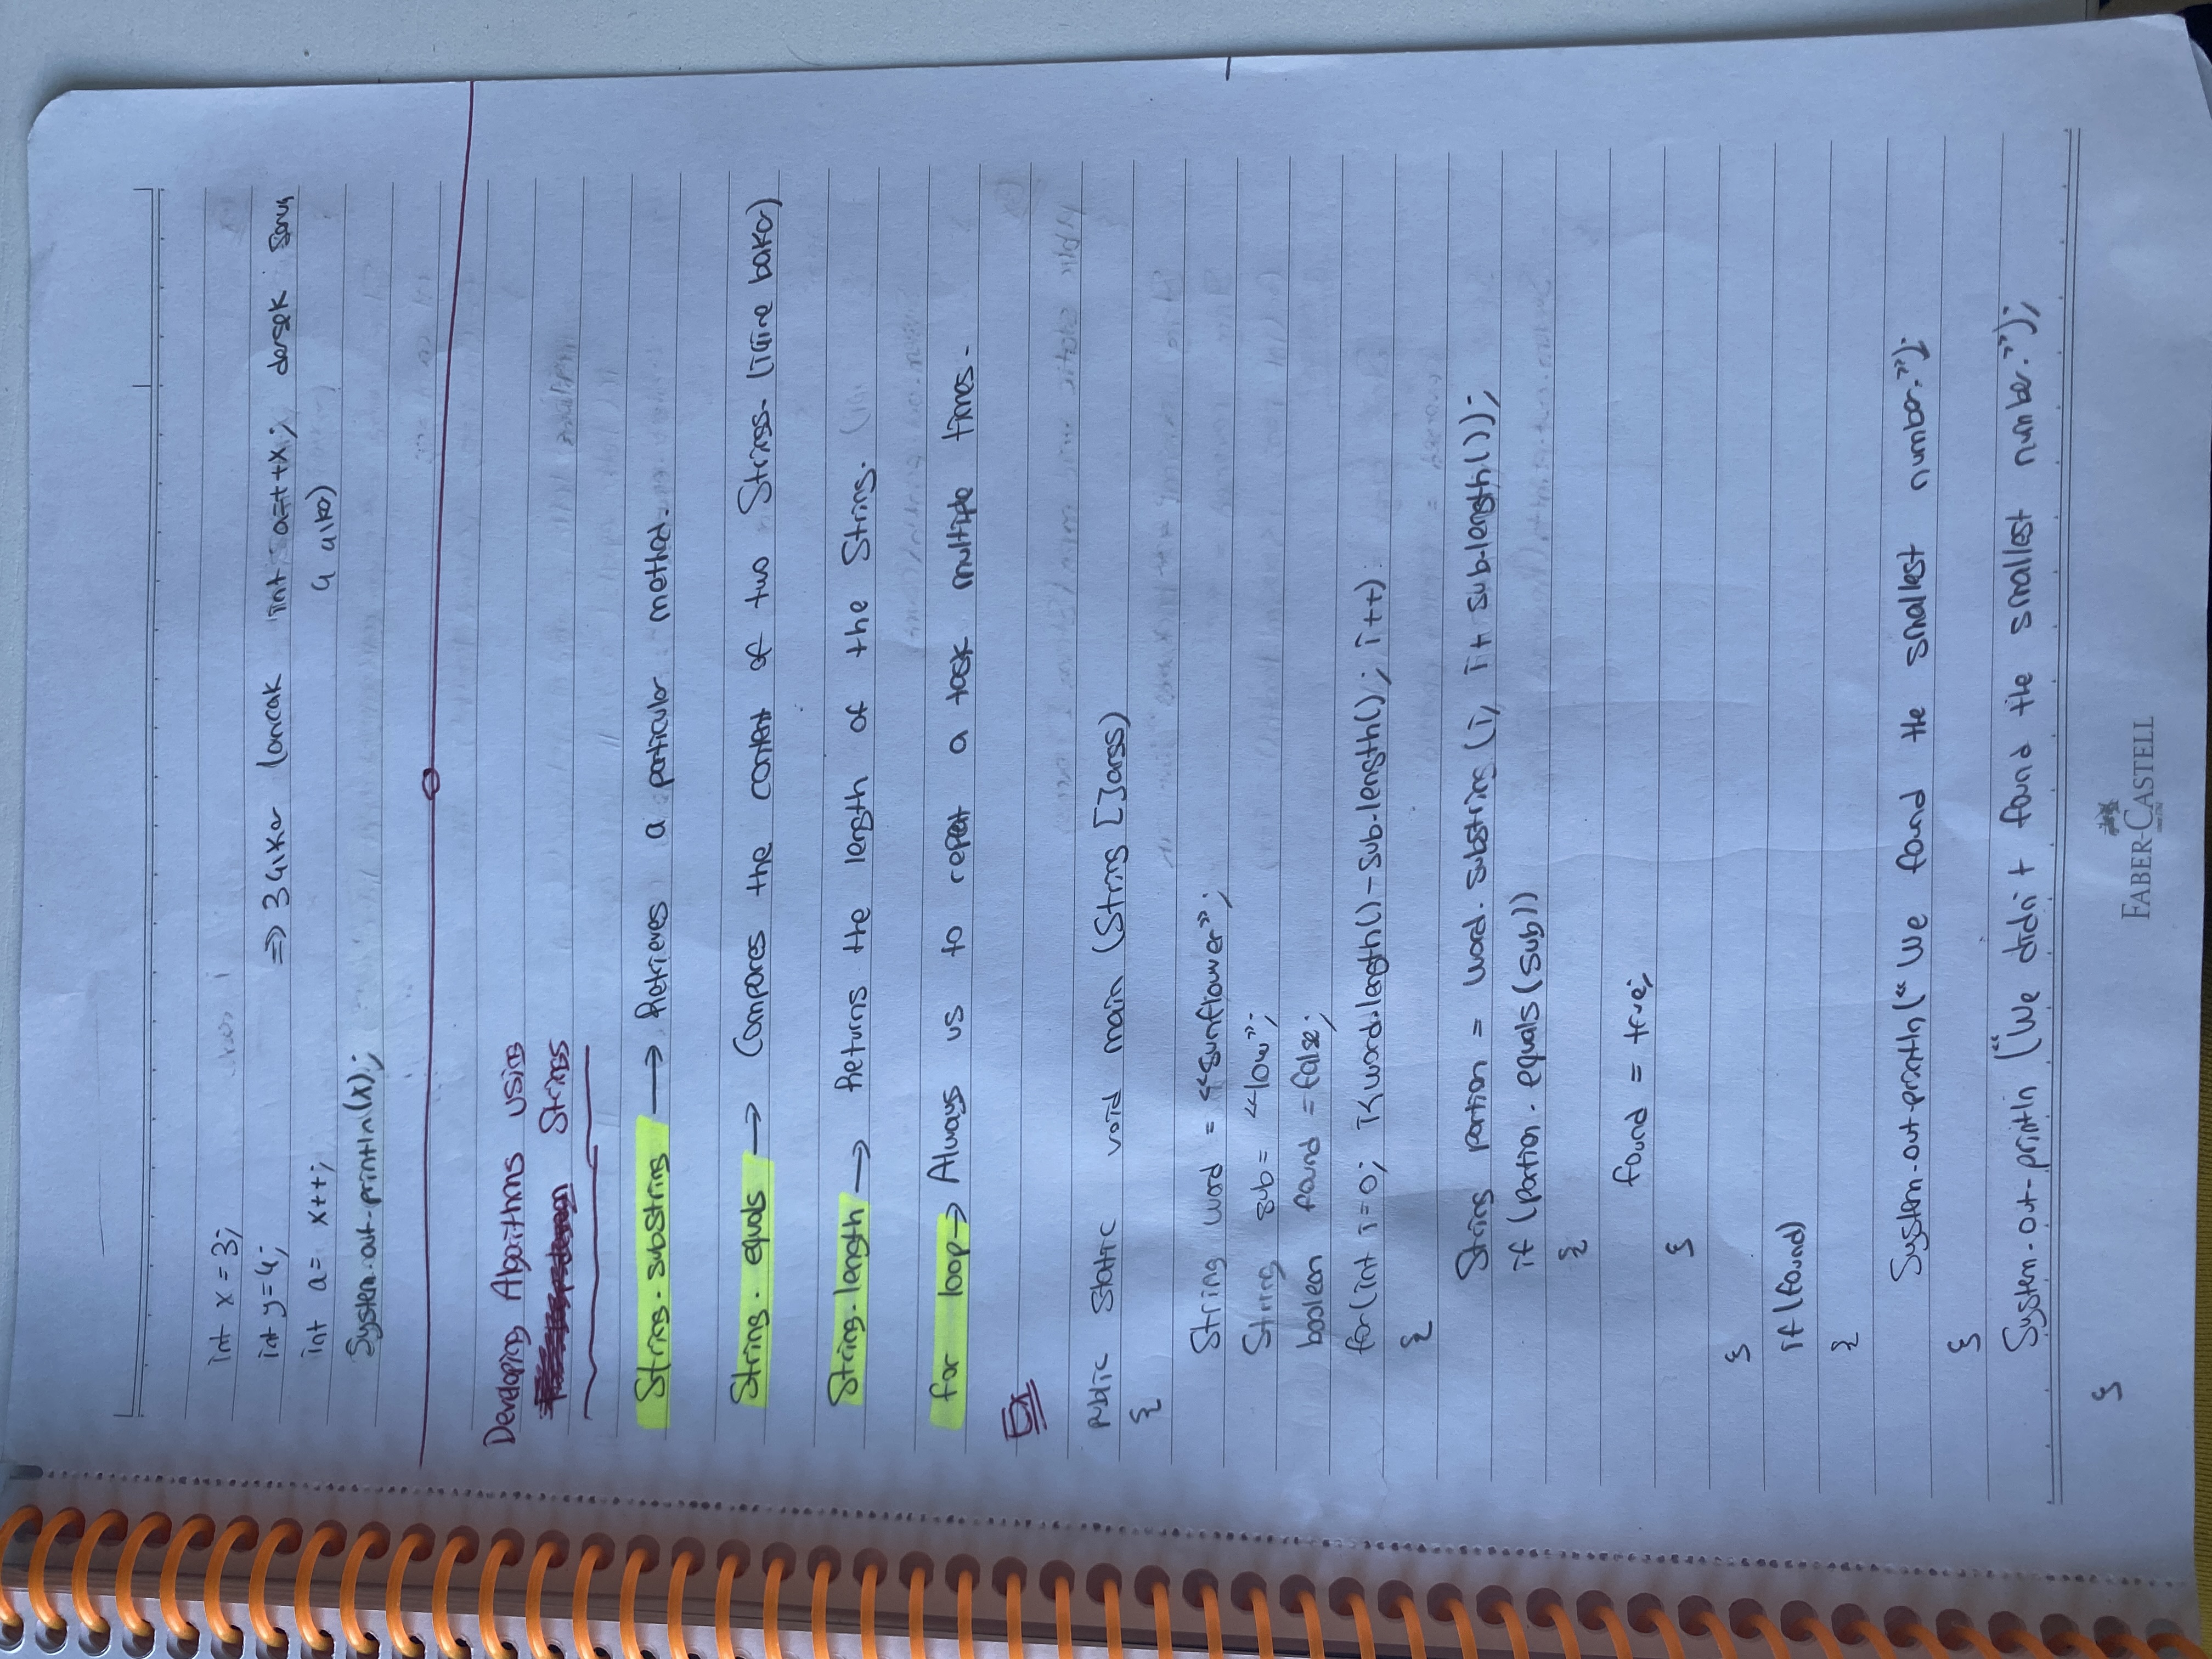 int x = 3;
int y=4;
⇒ 3 çıkar (ancak int a=++x; dersek sonuç
int a= x++;
4 çıkar)
System.out.println(x);
Developing Algorithms using
Strings
String.substring → Retrieves a particular method.
String.equals → Compares the content of two Strings. (içine bakar)
String.length → Returns the length of the String.
for loop → Always us to repeat a task multiple times.
Ex
public static void main (String []args)
{
String word = "sunflower";
String sub = "low";
boolean found = false;
for(int i=0; i<word.length()-sub.length(); i++)
{
String portion = word.substring (i, i+ sub.length());
if (portion.equals(sub))
{
found = true;
}
}
if (found)
{
System.out.println("We found the smallest number.");
}
System.out.println ("We didn't found the smallest number.");
}
FABER-CASTELL
since 1761